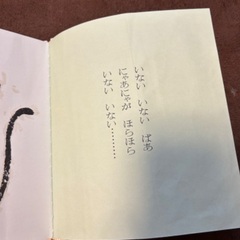 いない いない ばあ
にゃあにゃが ほらほら
いない いない………